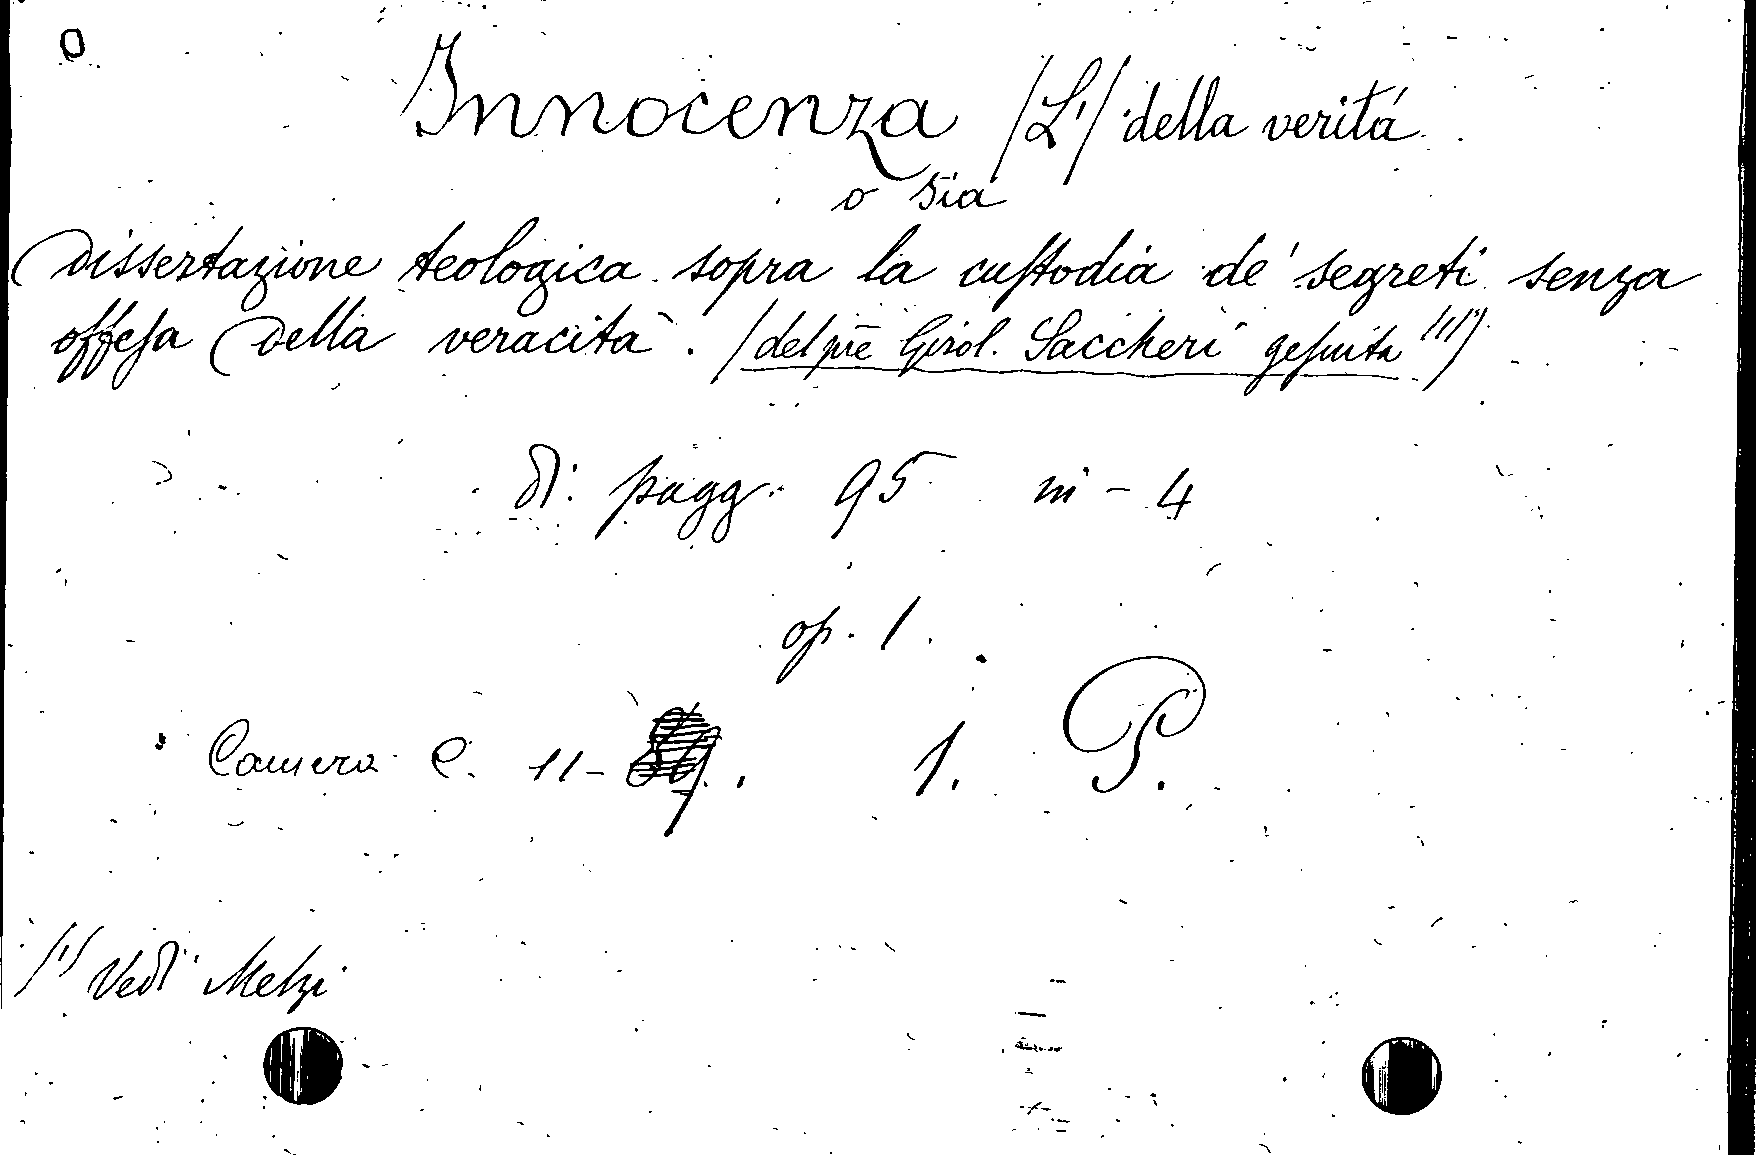 O
Innocenza /L'/ della veritá
o sia
Dissertazione teologica sopra la custodia de' segreti senza
offesa della veracità. /del pre Girol. Saccheri gesuita /1/)
di pagg. 95 in-4
op. 1.
Camera C. 11- . 1. P.
/1/ Vedi Melzi